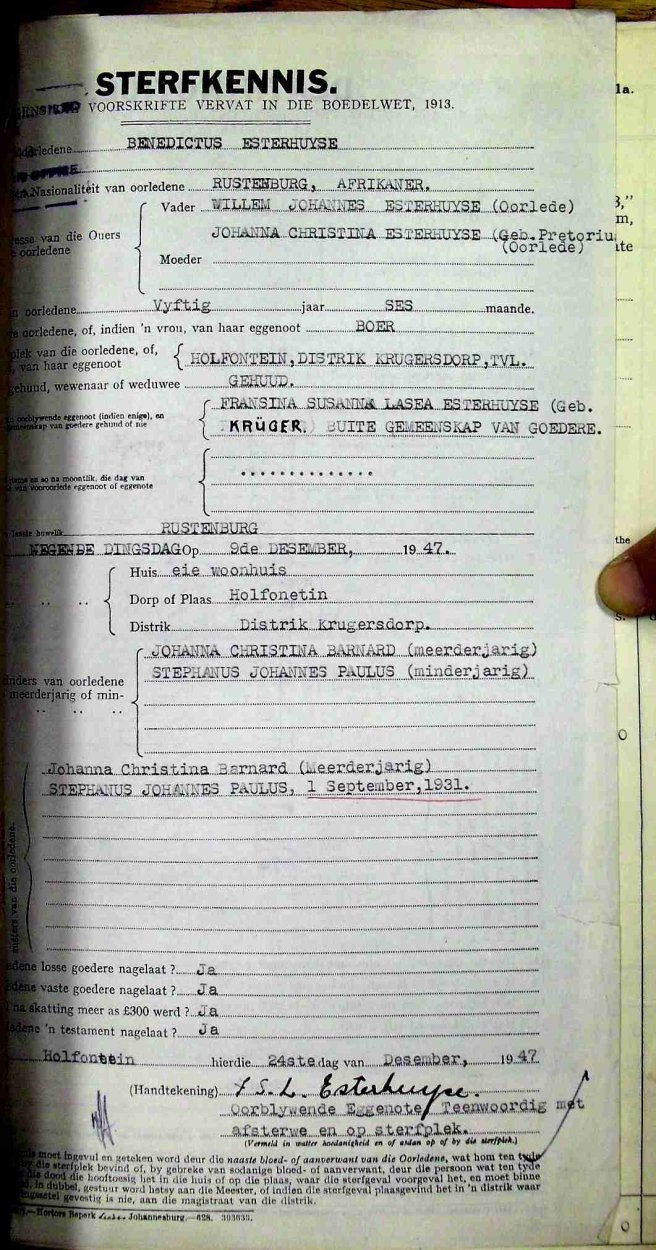 STERFKENNIS.
VOORSKRIFTE VERVAT IN DIE BOEDELWET, 1913.
BENEDICTUS ESTERHUYSE
Nasionaliteit van oorledene RUSTENBURG, AFRIKANER.
Vader WILLEM JOHANNES ESTERHUYSE (Oorlede)
van die Ouers
oorledene
JOHANNA CHRISTINA ESTERHUYSE (Geb.Pretoriu
(Oorlede)
Moeder
oorledene Vyftig jaar SES maande.
oorledene, of, indien 'n vrou, van haar eggenoot BOER
van die oorledene, of,
van haar eggenoot HOLFONTEIN,DISTRIK KRUGERSDORP,TVL.
wewenaar of weduwee GEHUUD.
eggenoot (indien enige), en FRANSINA SUSANNA LASEA ESTERHUYSE (Geb.
van goedere gehuud of nie KRÜGER.) BUITE GEMEENSKAP VAN GOEDERE.
en so na moontlik, die dag van
van vooroorlede eggenoot of eggenote
laaste huwelik RUSTENBURG
NEGENDE DINGSDAG Op 9de DESEMBER, 1947.
Huis eie woonhuis
Dorp of Plaas Holfonetin
Distrik Distrik Krugersdorp.
JOHANNA CHRISTINA BARNARD (meerderjarig)
STEPHANUS JOHANNES PAULUS (minderjarig)
van oorledene
meerderjarig of min-
Johanna Christina Barnard (Meerderjarig)
STEPHANUS JOHANNES PAULUS, 1 September,1931.
van die oorledene.
losse goedere nagelaat ? Ja
vaste goedere nagelaat ? Ja
na skatting meer as £300 werd ? Ja
'n testament nagelaat ? Ja
Holfontein hierdie 24ste dag van Desember, 1947
(Handtekening) F S. L. Esterhuyse.
Oorblywende Eggenote, Teenwoordig met
afsterwe en op sterfplek.
(Vermeld in watter hoedanigheid en of aldan op of by die sterfplek.)
moet ingevul en geteken word deur die naaste bloed- of aanverwant van die Oorledene, wat hom ten tyde
die sterfplek bevind of, by gebreke van sodanige bloed- of aanverwant, deur die persoon wat ten tyde
die dood die hooftoesig het in die huis of op die plaas, waar die sterfgeval voorgeval het, en moet binne
in dubbel, gestuur word hetsy aan die Meester, of indien die sterfgeval plaasgevind het in 'n distrik waar
gevestig is nie, aan die magistraat van die distrik.
Hortors Beperk Johannesburg.—628.
la.
3,"
m,
ite
the
s.